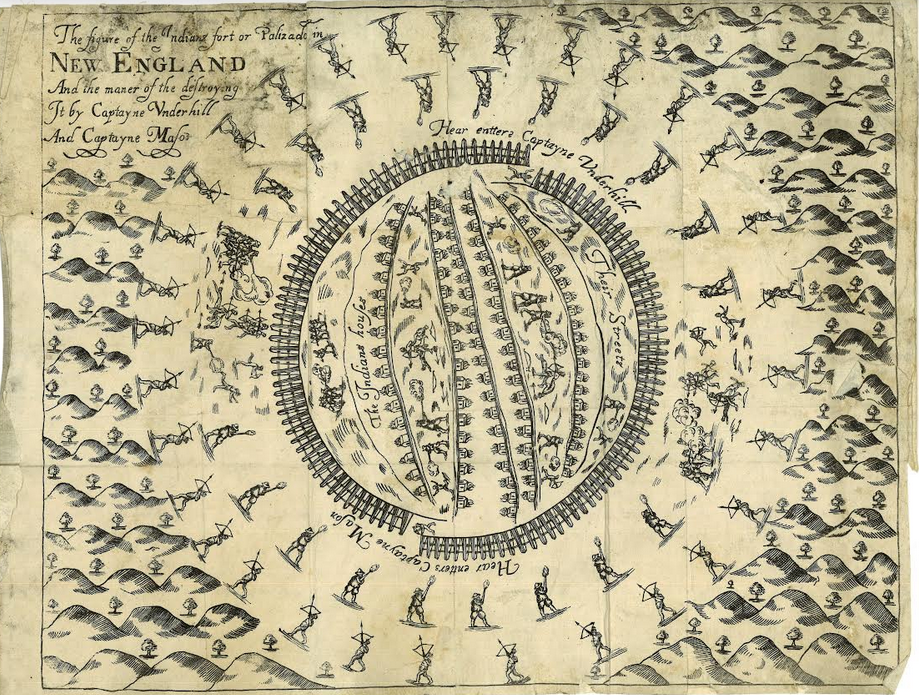 The figure of the Indians fort or Palizado in
NEW ENGLAND
And the maner of the destroying
It by Captayne Vnderhill
And Captayne Mason
Hear entters Captayne Vnderhill
Their Streets
The Indian houses
Hear entters Captayne Mason